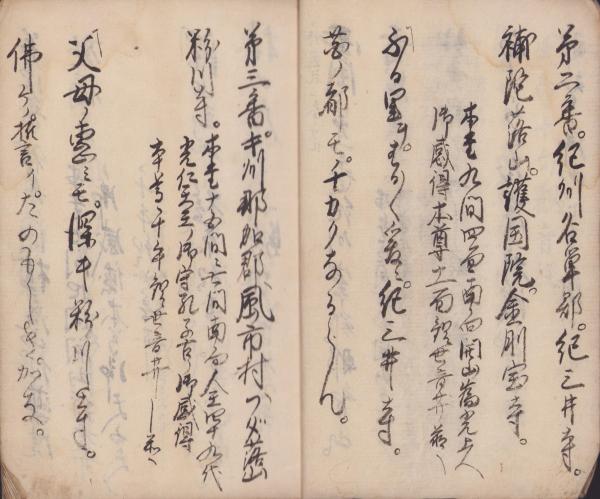 第二番。紀州名草郡。紀三井寺。
補陀落山。護国院。金剛宝寺。
本堂九間四面南向開山為光上人
御感得本尊十一面観世音廾
ふる里をはる〳〵爰に紀三井寺。
花の都も。ちかくなるらん。
第三番。紀州那加郡風市村
粉川寺。
本堂十五間ニ七間南向人皇四十九代
光仁天王御守孔子古御感得
本尊千手観世音廾
父母の恵ミも。深キ粉川寺。
佛のちかひ。たのもしきかな。